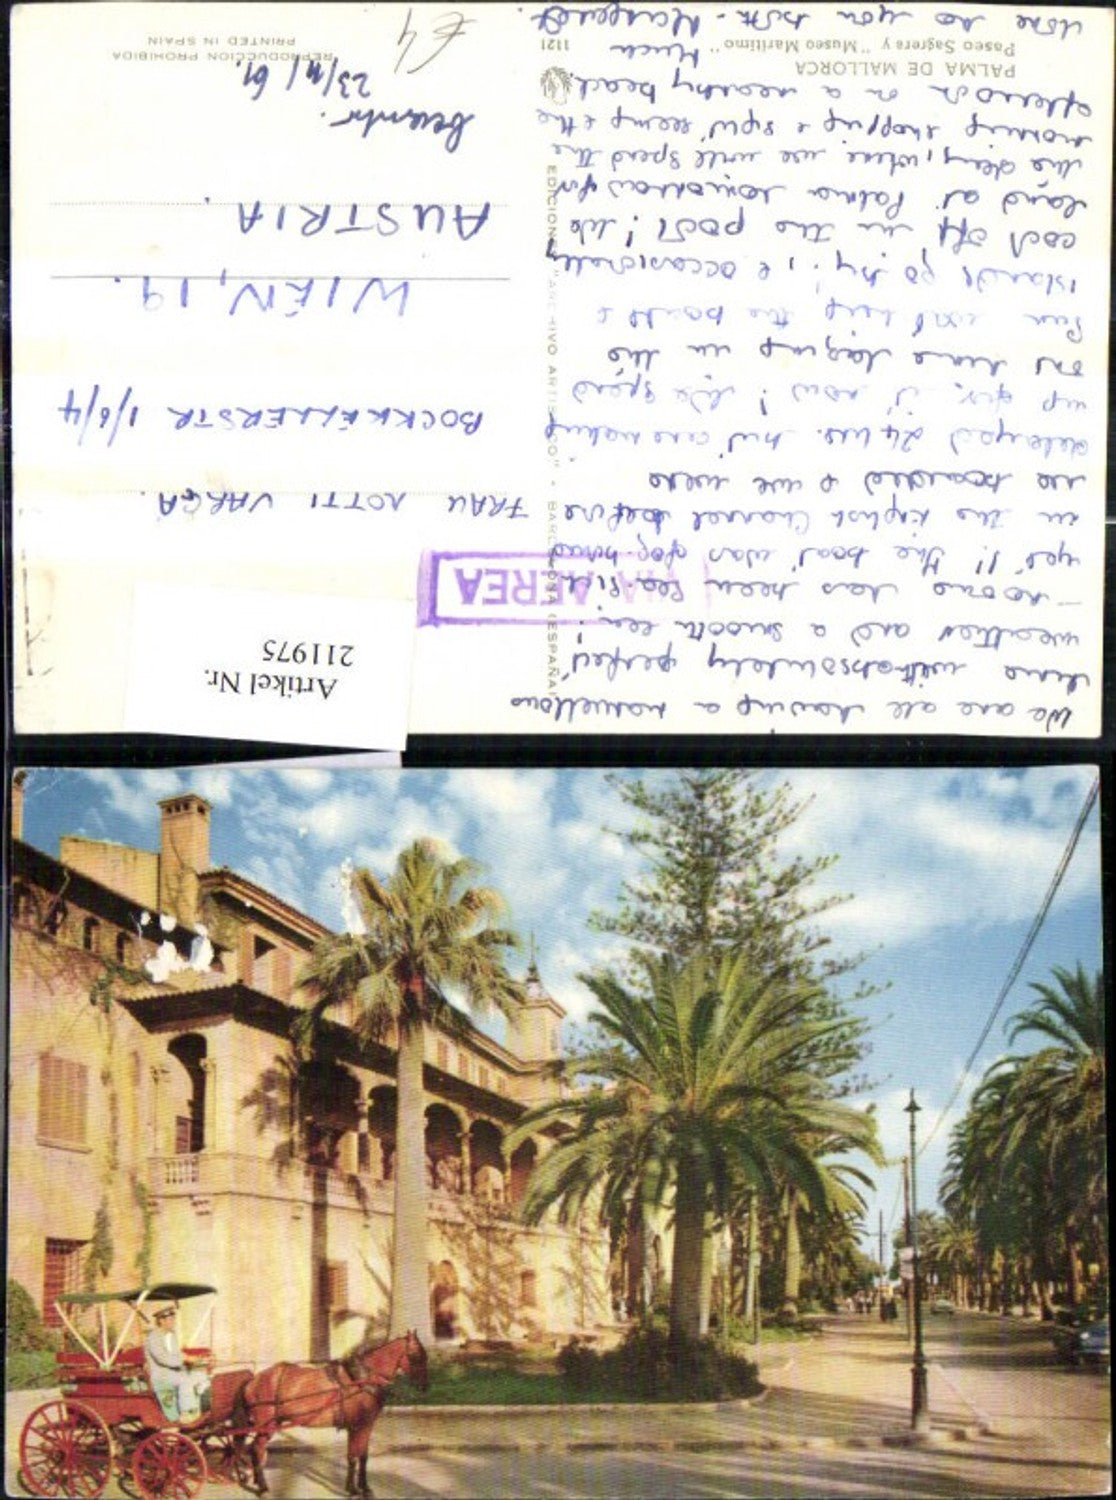 We are all having a marvellous
time with absolutely perfect
weather and a smooth sea;
- no one has been sea-sick
yet!! The boat was fog-bound
in the English Channel before
we boarded & we were
delayed 24 hrs. but are making
up for it now! We spend
our time lazing in the
sun watching the boats &
islands go by; & occasionally
cool off in the pool! We
land at Palma tomorrow for
the day, where we will spend the
morning shopping & sight seeing & the
afternoon on a nearby beach.
Much
love to you both - Margaret.
PALMA DE MALLORCA
Paseo Sagrera y "Museo Marítimo"
1121
EDICIONES "ARCHIVO ARTISTICO" - BARCELONA (ESPAÑA)
VIA AEREA
FRAU LOTTI VARGA.
BOCKKELLERSTR 1/6/4
WIEN, 19.
AUSTRIA.
23/
61.
£4
REPRODUCCION PROHIBIDA
PRINTED IN SPAIN
Artikel Nr.
211975